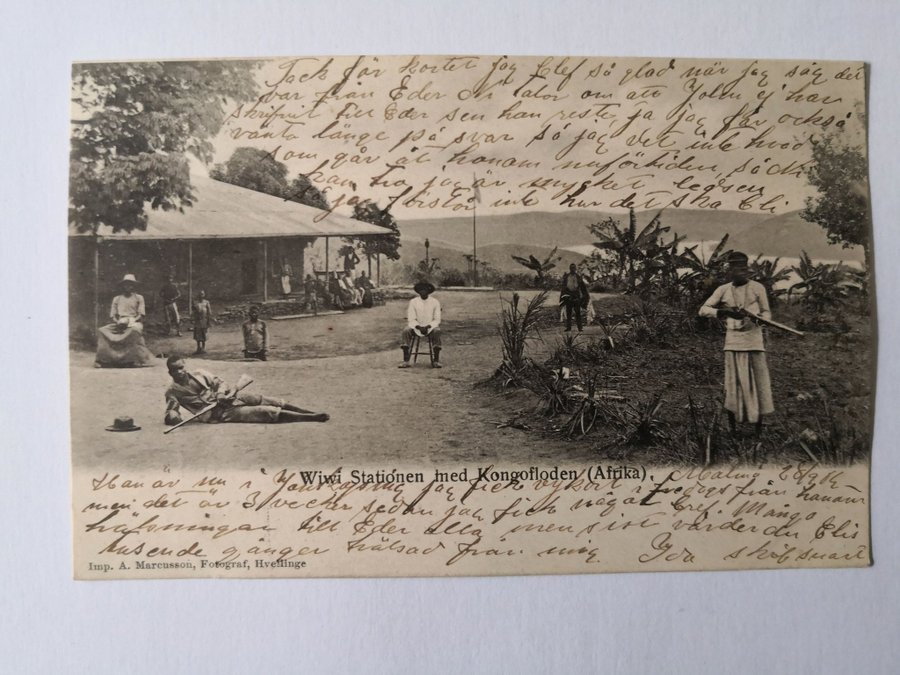 Tack för kortet jag blef så glad när jag såg det
var från Eder om att John har
skrifvit till Eder sen han reste ja jag får också
vänta länge på svar så jag vet inte hvad
som går åt honom nuförtiden
han jag är mycket ledsen
jag förstår inte hur det ska bli
Wiwi Stationen med Kongofloden (Afrika).
Malmö
Han är nu i jag fick från honom
men det är 3 veckor sedan jag fick något bref. Många
hälsningar till Eder alla men sist Elis
tusende gånger hälsad från mig. Ida skrif snart
Imp. A. Marcusson, Fotograf, Hvellinge